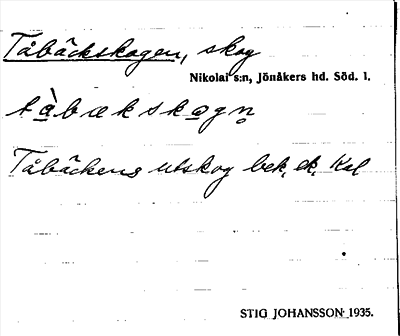 Tåbäckskogen, skog
Nikolai s:n, Jönåkers hd. Söd. l.
tàbækskogn̥
Tåbäckens utskog bek, ek, Kal
STIG JOHANSSON 1935.